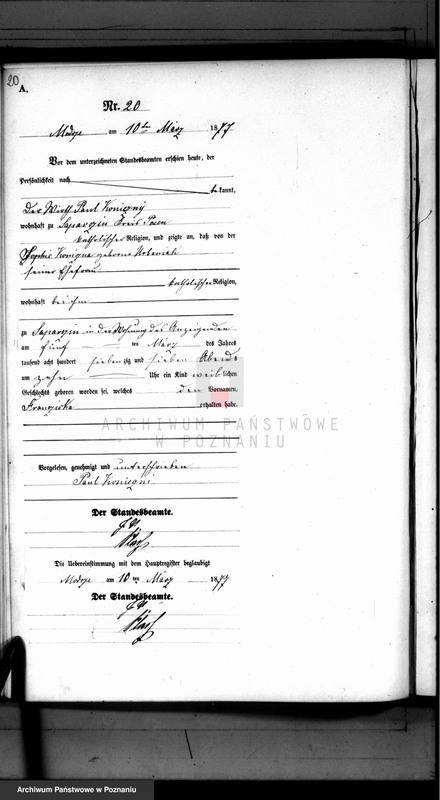 20
A.
Nr. 20
am 10ten März 1877
Vor dem unterzeichneten Standesbeamten erschien heute, der
Persönlichkeit nach
bekannt,
Der Wirth Paul Koniczny
wohnhaft zu Kreis Posen
katholischer Religion, und zeigte an, daß von der
Sophie geborene
seiner Ehefrau
katholischer Religion,
wohnhaft bei ihm
zu in der Wohnung des Anzeigenden
am fünften März des Jahres
tausend acht hundert siebenzig und sieben Abends
um zehn Uhr ein Kind weiblichen
Geschlechts geboren worden sei, welches den Vornamen
Franziska erhalten habe.
ARCHIWUM PAŃSTWOWE
W POZNANIU
Vorgelesen, genehmigt und unterschrieben
Paul
Der Standesbeamte.
Die Uebereinstimmung mit dem Hauptregister beglaubigt
am 10ten März 1877
Der Standesbeamte.
Archiwum Państwowe w Poznaniu